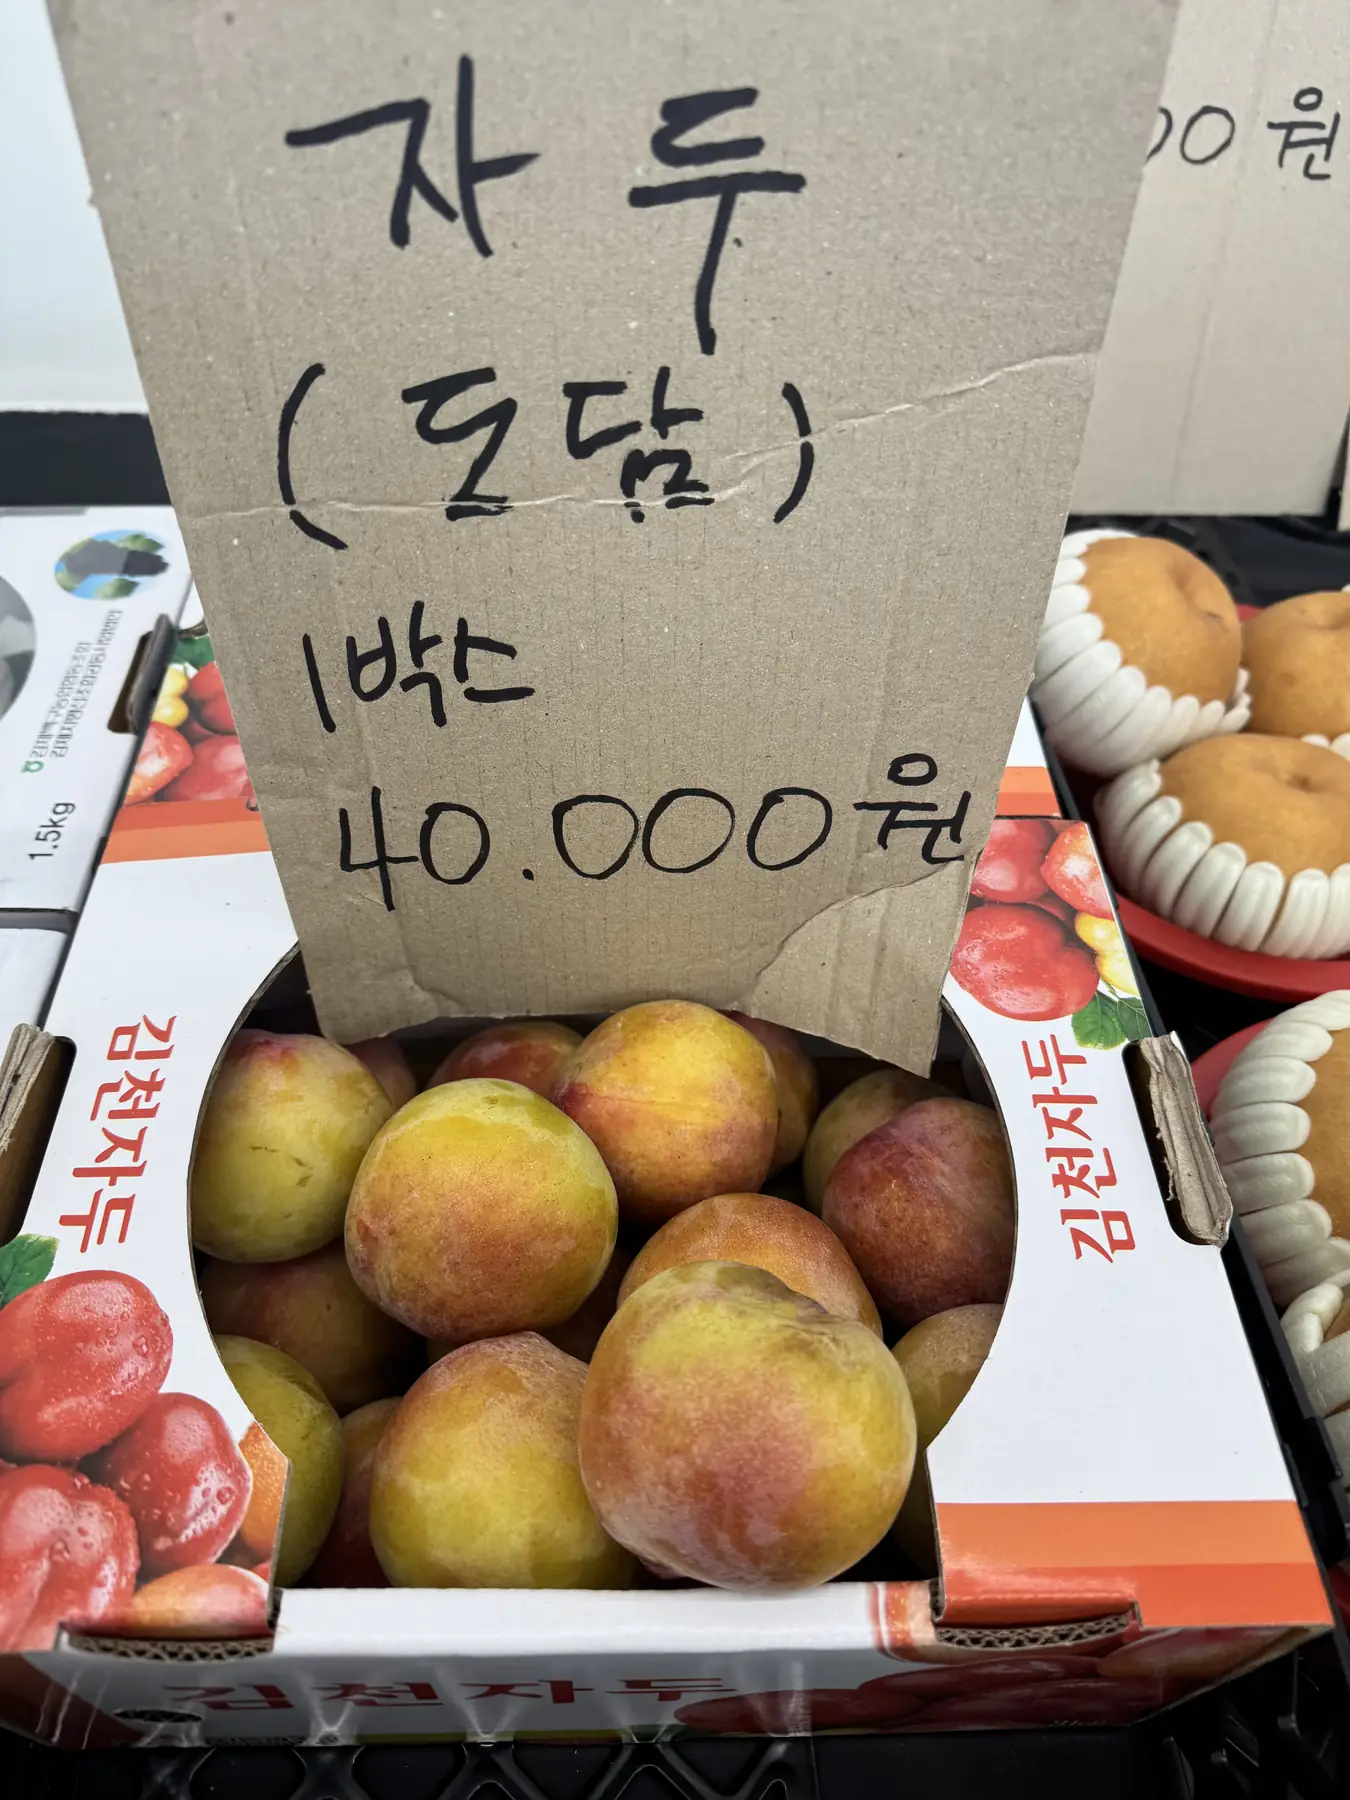 자두
(도담)
1박스
40.000원
00원
1.5kg
김천자두
김천자두
김천자두